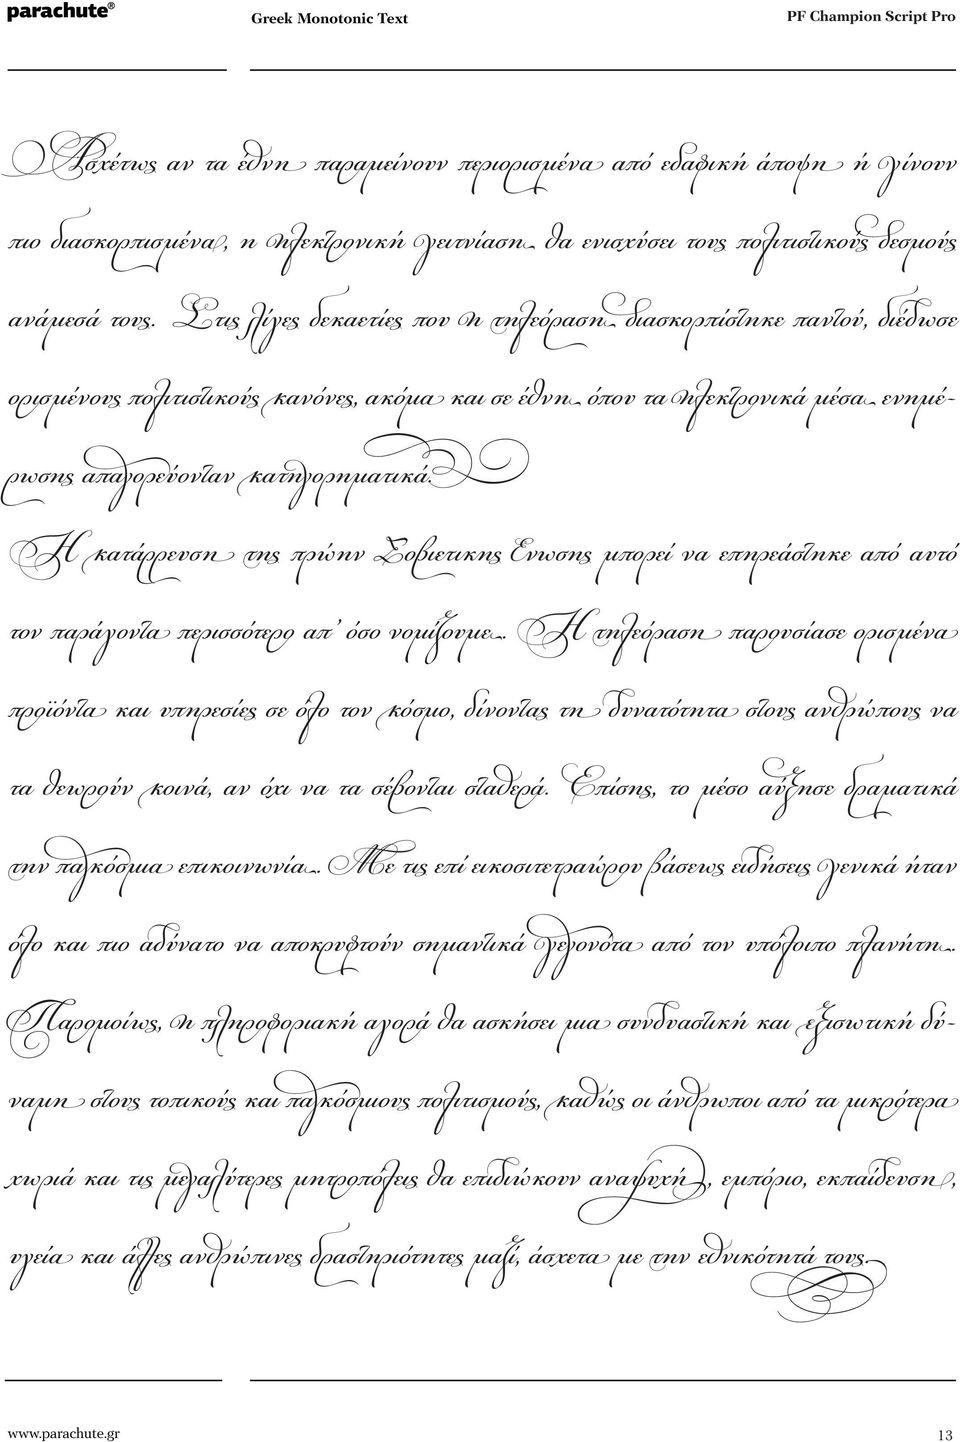 parachute®
Greek Monotonic Text
PF Champion Script Pro
Ασχέτως αν τα έθνη παραμείνουν περιορισμένα από εδαφική άποψη ή γίνουν
πιο διασκορπισμένα, η ηλεκτρονική γειτνίαση θα ενισχύσει τους πολιτιστικούς δεσμούς
ανάμεσά τους. Στις λίγες δεκαετίες που η τηλεόραση διασκορπίστηκε παντού, διέδωσε
ορισμένους πολιτιστικούς κανόνες, ακόμα και σε έθνη όπου τα ηλεκτρονικά μέσα ενημέ-
ρωσης απαγορεύονταν κατηγορηματικά.
Η κατάρρευση της πρώην Σοβιετικης Ενωσης μπορεί να επηρεάστηκε από αυτό
τον παράγοντα περισσότερο απ’ όσο νομίζουμε. Η τηλεόραση παρουσίασε ορισμένα
προϊόντα και υπηρεσίες σε όλο τον κόσμο, δίνοντας τη δυνατότητα στους ανθρώπους να
τα θεωρούν κοινά, αν όχι να τα σέβονται σταθερά. Επίσης, το μέσο αύξησε δραματικά
την παγκόσμια επικοινωνία. Με τις επί εικοσιτετραώρου βάσεως ειδήσεις γενικά ήταν
όλο και πιο αδύνατο να αποκρυφτούν σημαντικά γεγονότα από τον υπόλοιπο πλανήτη.
Παρομοίως, η πληροφοριακή αγορά θα ασκήσει μια συνδυαστική και εξισωτική δύ-
ναμη στους τοπικούς και παγκόσμιους πολιτισμούς, καθώς οι άνθρωποι από τα μικρότερα
χωριά και τις μεγαλύτερες μητροπόλεις θα επιδιώκουν αναψυχή, εμπόριο, εκπαίδευση,
υγεία και άλλες ανθρώπινες δραστηριότητες μαζί, άσχετα με την εθνικότητά τους.
www.parachute.gr
13